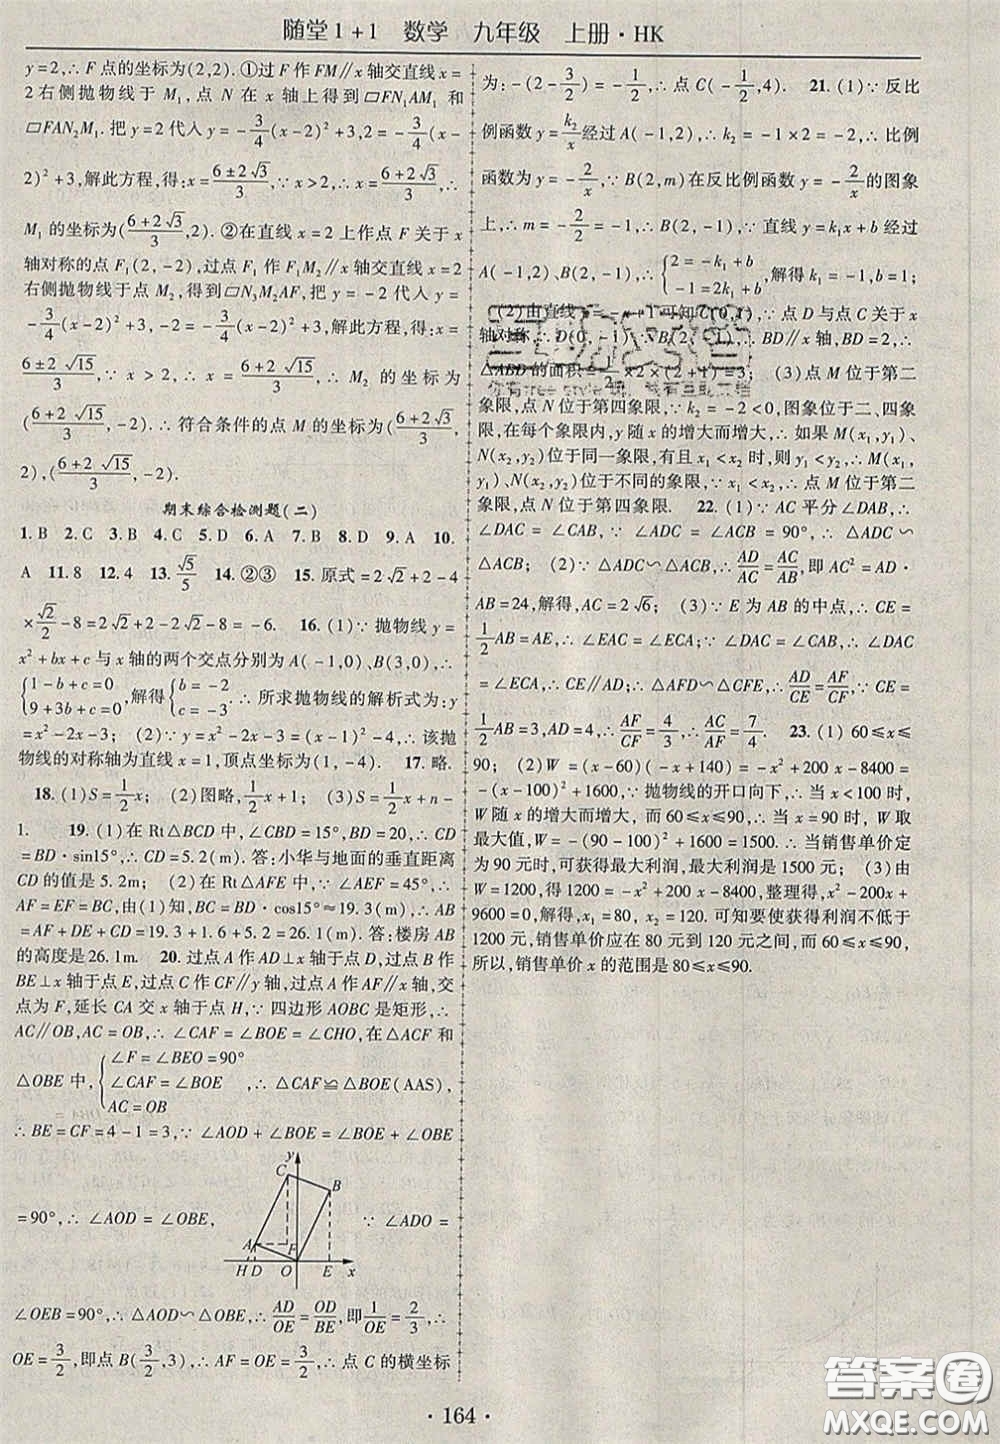 随堂1+1 数学 九年级 上册·HK
y=2,∴F点的坐标为(2,2).①过F作FM∥x轴交直线x=
2右侧抛物线于M₁,点N在x轴上得到▱FN₁AM₁和
▱FAN₂M₁.把y=2代入y=-3/4(x-2)²+3,2=-3/4(x-
2)²+3,解此方程,得:x=(6±2√3)/3,∵x>2,∴x=(6+2√3)/3,∴
M₁的坐标为((6+2√3)/3,2).②在直线x=2上作点F关于x
轴对称的点F₁(2,-2),过点F₁作F₁M₂∥x轴交直线x=2
右侧抛物线于点M₂,所得▱N₃M₂AF,把y=-2代入y=
-3/4(x-2)²+3,得-2=-3/4(x-2)²+3,解此方程,得:x=
(6±2√15)/3,∵x>2,∴x=(6+2√15)/3,∴M₂的坐标为
((6+2√15)/3,-2).∴符合条件的点M的坐标为((6+2√3)/3,
2),((6+2√15)/3,-2).
期末综合检测题(二)
1.B 2.C 3.B 4.C 5.D 6.A 7.B 8.D 9.A 10.
A 11.8 12.4 13.√5/5 14.②③ 15.原式=2√2+2-4
×√2/2-8=2√2+2-2√2-8=-6. 16.(1)∵抛物线y=
x²+bx+c与x轴的两个交点分别为A(-1,0)、B(3,0),∴
{1-b+c=0 9+3b+c=0,解得{b=-2 c=-3.∴所求抛物线的解析式为:y
=x²-2x-3; (2)∵y=x²-2x-3=(x-1)²-4,∴该抛
物线的对称轴为直线x=1,顶点坐标为(1,-4). 17.略.
18.(1)S=1/2x; (2)图略,1/2x+1; (3)S=1/2x+n-
1. 19.(1)在Rt△BCD中,∠CBD=15°,BD=20,∴CD
=BD·sin15°,∴CD=5.2(m).答:小华与地面的垂直距离
CD的值是5.2m; (2)在Rt△AFE中,∵∠AEF=45°,∴
AF=EF=BC,由(1)知,BC=BD·cos15°≈19.3(m),∴AB
=AF+DE+CD=19.3+1.6+5.2=26.1(m).答:楼房AB
的高度是26.1m. 20.过点A作AD⊥x轴于点D,过点B作
BE⊥x轴于点E,过点C作CF∥y轴,过点A作AF∥x轴,
交点为F,延长CA交x轴于点H,∵四边形AOBC是矩形,∴
AC∥OB,AC=OB,∴∠CAF=∠BOE=∠CHO,在△ACF和
△OBE中,{∠F=∠BEO=90° ∠CAF=∠BOE AC=OB,∴△CAF≌△OBE(AAS),
∴BE=CF=4-1=3,∵∠AOD+∠BOE=∠BOE+∠OBE
=90°,∴∠AOD=∠OBE, ∵∠ADO=
y C B A F H D O E x
∠OEB=90°,∴△AOD∽△OBE,∴AD/OE=OD/BE,即1/OE=2/3,∴
OE=3/2,即点B(3/2,3),∴AF=OE=3/2,∴点C的横坐标
为:-(2-3/2)=-1/2,∴点C(-1/2,4). 21.(1)∵反比
例函数y=k₂/x经过A(-1,2),∴k₂=-1×2=-2,∴比例
函数为y=-2/x,∵B(2,m)在反比例函数y=-2/x的图象
上,∴m=-2/2=-1,∴B(2,-1).∵直线y=k₁x+b经过
A(-1,2)、B(2,-1),∴{2=-k₁+b -1=2k₁+b,解得k₁=-1,b=1;
(2)由直线y=-x+1可知C(0,1),∵点D与点C关于x
轴对称,∴D(0,-1),∵B(2,-1),∴BD∥x轴,BD=2,∴
△ABD的面积=1/2×2×(2+1)=3; (3)点M位于第二
象限,点N位于第四象限,∵k₂=-2<0,图象位于二、四象
限,在每个象限内,y随x的增大而增大,∴如果M(x₁,y₁)、
N(x₂,y₂)位于同一象限,有且x₁<x₂时,y₁<y₂,∴M(x₁,
y₁)、N(x₂,y₂)位于不同的象限,∵x₁<x₂,∴点M位于第二
象限,点N位于第四象限. 22.(1)∵AC平分∠DAB,∴
∠DAC=∠CAB,∵∠ADC=∠ACB=90°,∴△ADC∽
△ACB; (2)∵△ADC∽△ACB,∴AD/AC=AC/AB,即AC²=AD·
AB=24,解得,AC=2√6; (3)∵E为AB的中点,∴CE=
1/2AB=AE,∴∠EAC=∠ECA;∵∠DAC=∠CAB,∴∠DAC
=∠ECA,∴CE∥AD;∴△AFD∽△CFE,∴AD/CE=AF/CF,∵CE=
1/2AB=3,AD=4,∴AF/CF=4/3,∴AC/AF=7/4. 23.(1)60≤x≤
90; (2)W=(x-60)(-x+140)=-x²+200x-8400=
-(x-100)²+1600,∵抛物线的开口向下,∴当x<100时,
W随x的增大而增大,而60≤x≤90,∴当x=90时,W取
最大值,W=-(90-100)²+1600=1500.∴当销售单价定
为90元时,可获得最大利润,最大利润是1500元; (3)由
W=1200,得1200=-x²+200x-8400,整理得,x²-200x+
9600=0,解得,x₁=80, x₂=120.可知要使获得利润不低于
1200元,销售单价应在80元到120元之间,而60≤x≤90,
所以,销售单价x的范围是80≤x≤90.
·164·
答案圈
MXQE.COM